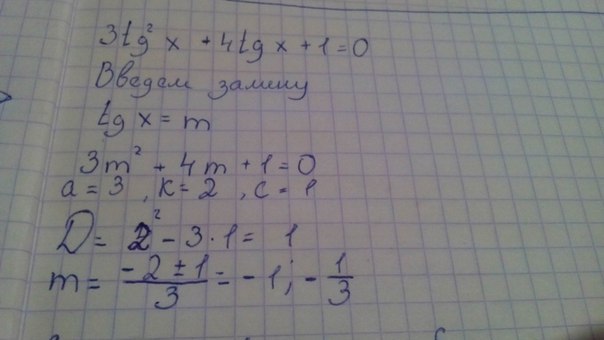 3tg²x + 4tgx + 1 = 0
Введем замену
tg x = m
3m² + 4m + 1 = 0
a = 3, k = 2, c = 1
D = 2² - 3·1 = 1
m = (-2 ± 1)/3 = -1; -1/3